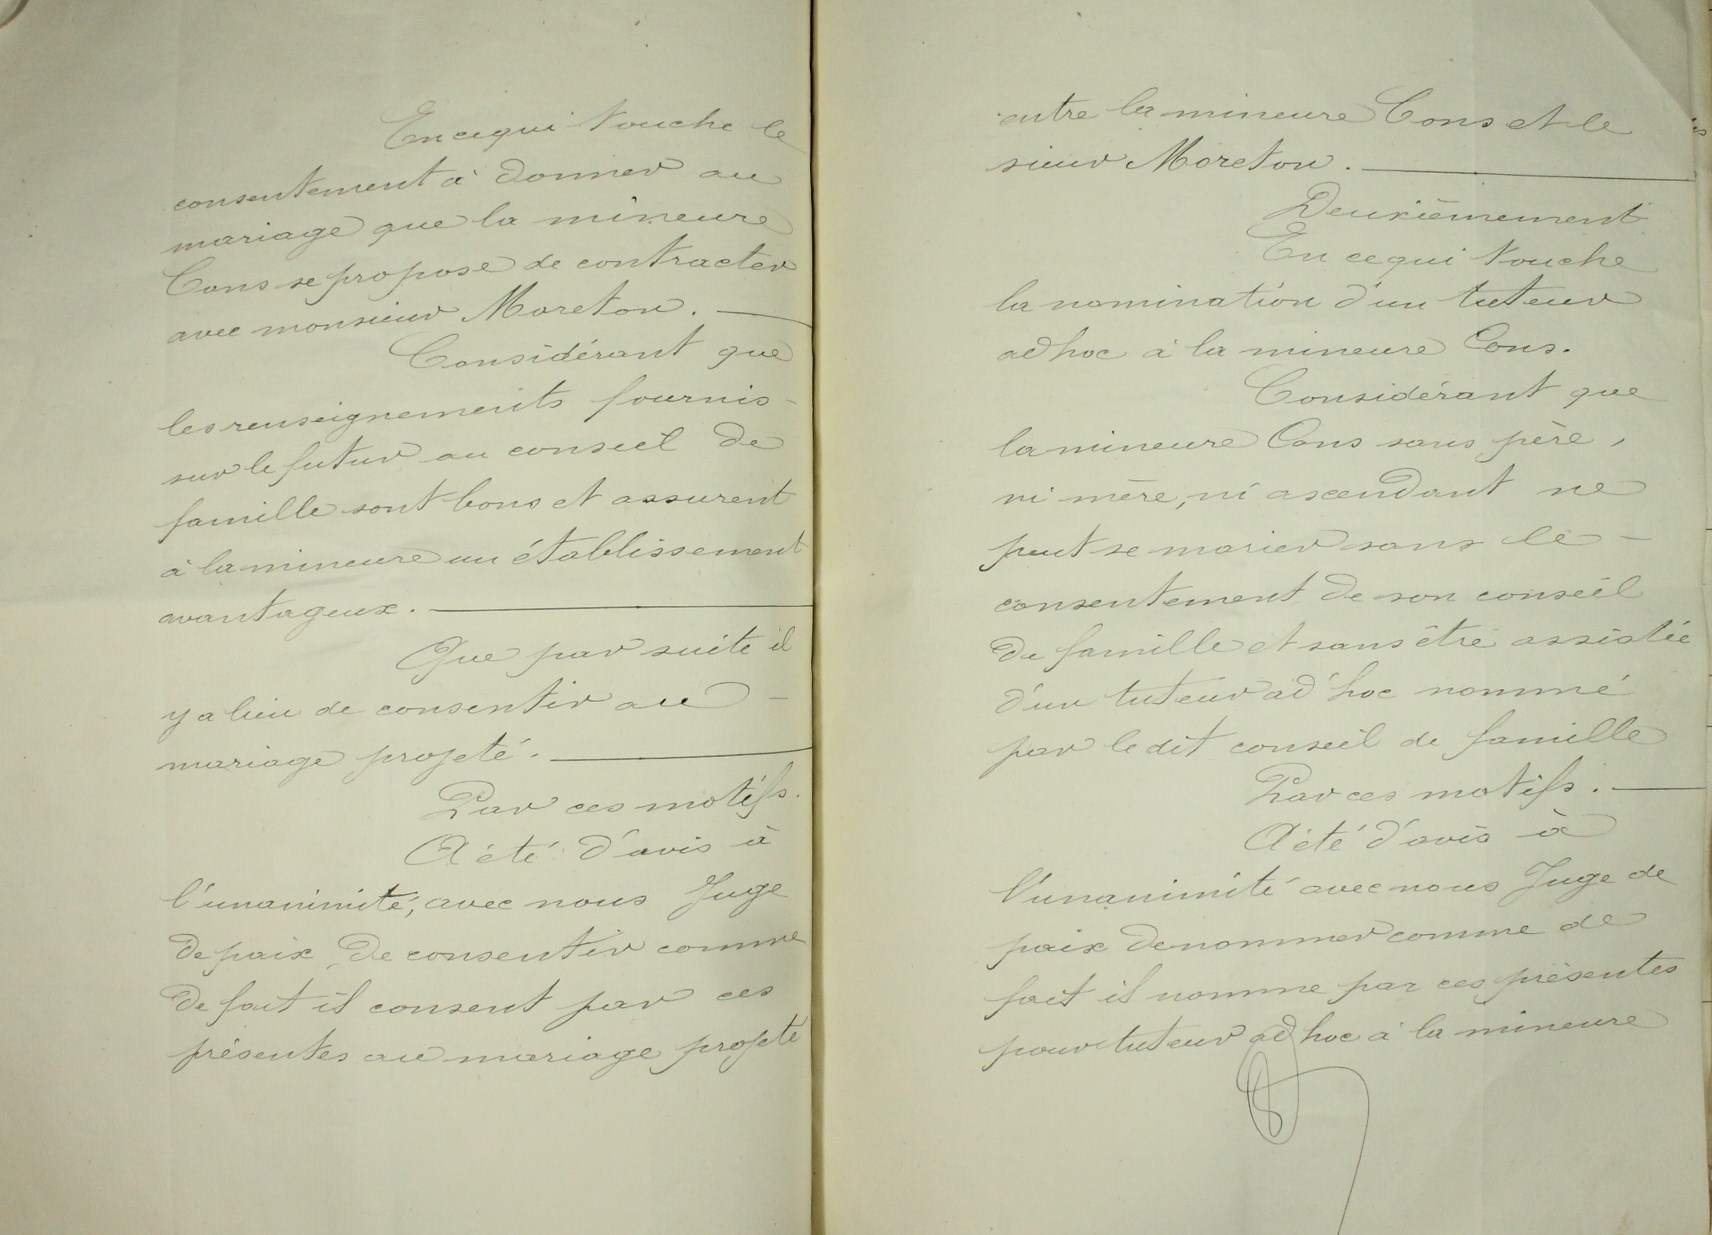 En ce qui touche le
consentement à donner au
mariage que la mineure
Cons se propose de contracter
avec monsieur Moreton.
Considérant que
les renseignements fournis
sur le futur au conseil de
famille sont bons et assurent
à la mineure un établissement
avantageux.
Que par suite il
y a lieu de consentir au
mariage projeté.
Par ces motifs.
A été d'avis à
l'unanimité, avec nous Juge
de paix, de consentir comme
de fait il consent par ces
présentes au mariage projeté
entre la mineure Cons et le
sieur Moreton.
Deuxièmement
En ce qui touche
la nomination d'un tuteur
ad hoc à la mineure Cons.
Considérant que
la mineure Cons sans père,
ni mère, ni ascendant ne
peut se marier sans le
consentement de son conseil
de famille et sans être assistée
d'un tuteur ad'hoc nommé
par le dit conseil de famille
Par ces motifs.
A été d'avis à
l'unanimité avec nous Juge de
paix de nommer comme de
fait il nomme par ces présentes
pour tuteur ad hoc à la mineure